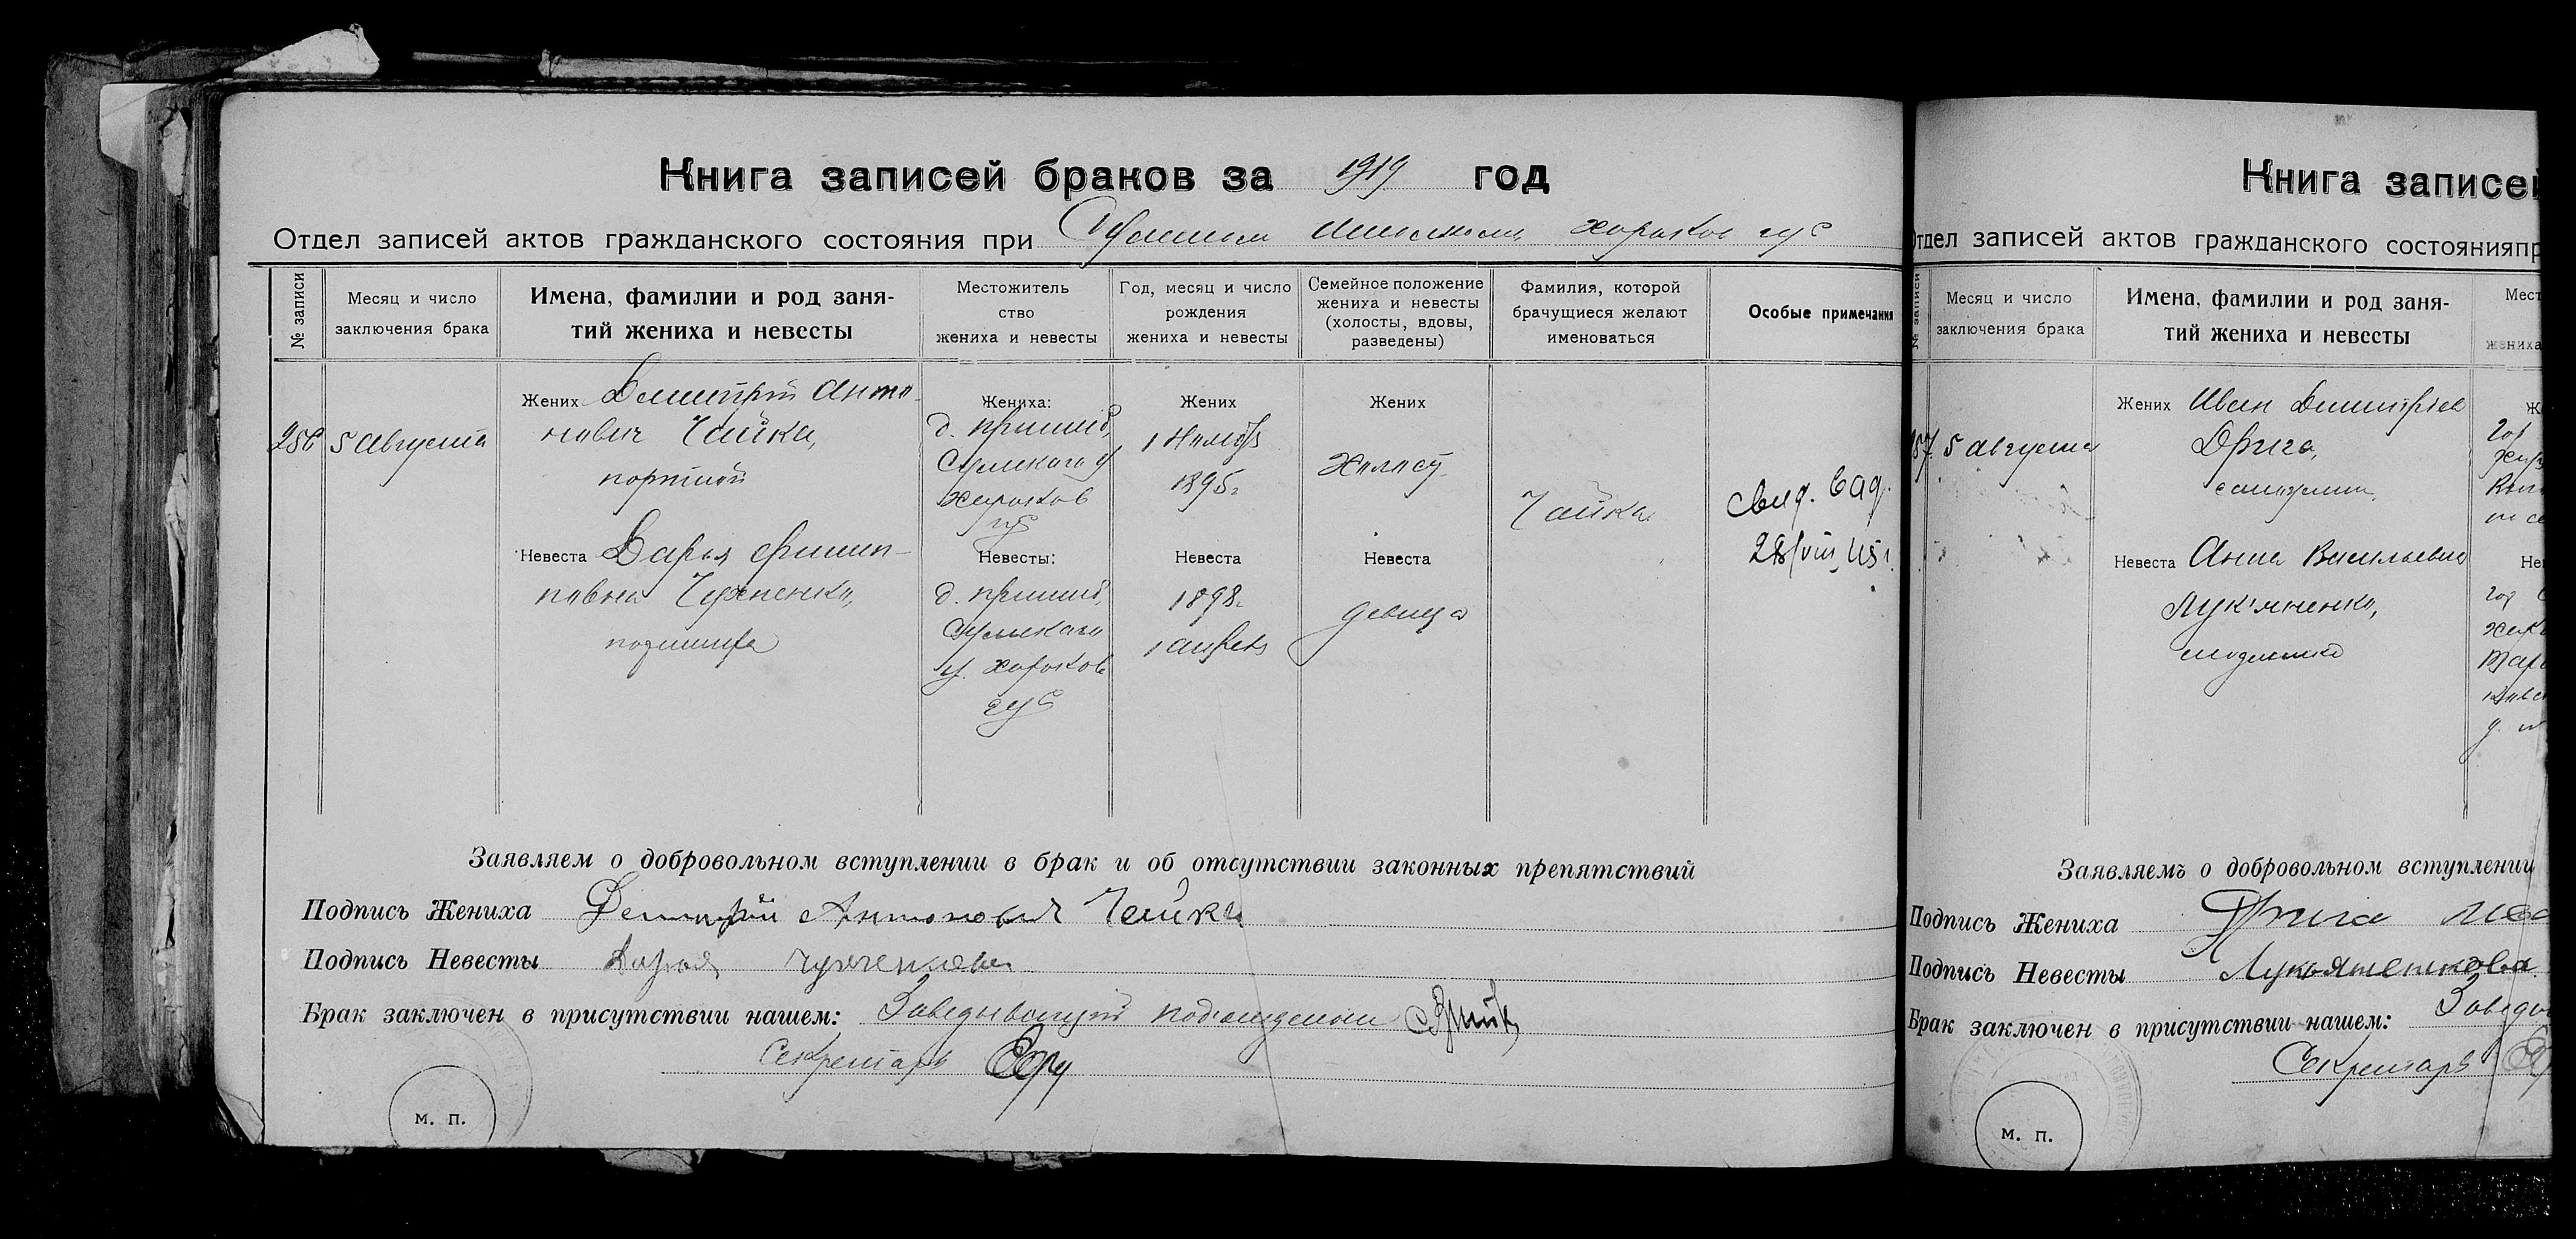 Книга записей браков за 1919 год
Отдел записей актов гражданского состояния при
№ записи
Месяц и число заключения брака
Имена, фамилии и род заня-
тий жениха и невесты
Местожитель
ство
жениха и невесты
Год, месяц и число
рождения
жениха и невесты
Семейное положение
жениха и невесты
(холосты, вдовы,
разведены)
Фамилия, которой
брачущиеся желают
именоваться
Особые примечания
256
5 августа
Жених Димитрий Анто-
нович Чайка,
портной
Жениха:
Сумскаго у
харьков
губ
Жених
1 Ноября
1895г
Жених
Холост
Чайка
Невеста Дарья Филип-
повна
Невесты:
Сумскаго
у. харьков
губ
Невеста
1898г
Невеста
девица
Заявляем о добровольном вступлении в брак и об отсутствии законных препятствий
Подпись Жениха Демитрий Антонович Чайка
Подпись Невесты Дарья
Брак заключен в присутствии нашем: Заведывающий подотделом
Секретарь
м. п.
Книга записей
Отдел записей актов гражданского состояния пр
№ записи
Месяц и число
заключения брака
Имена, фамилии и род заня-
тий жениха и невесты
Мест
жениха
57. 5 августа
Жених Иван Димитриев
Дрига,
Невеста Анна Васильевна
Лук'яненко,
Заявляемъ о добровольном вступлении
Подпись Жениха Дрига
Подпись Невесты Лукьяненкова
Брак заключен в присутствии нашем:
Секретарь
м. п.